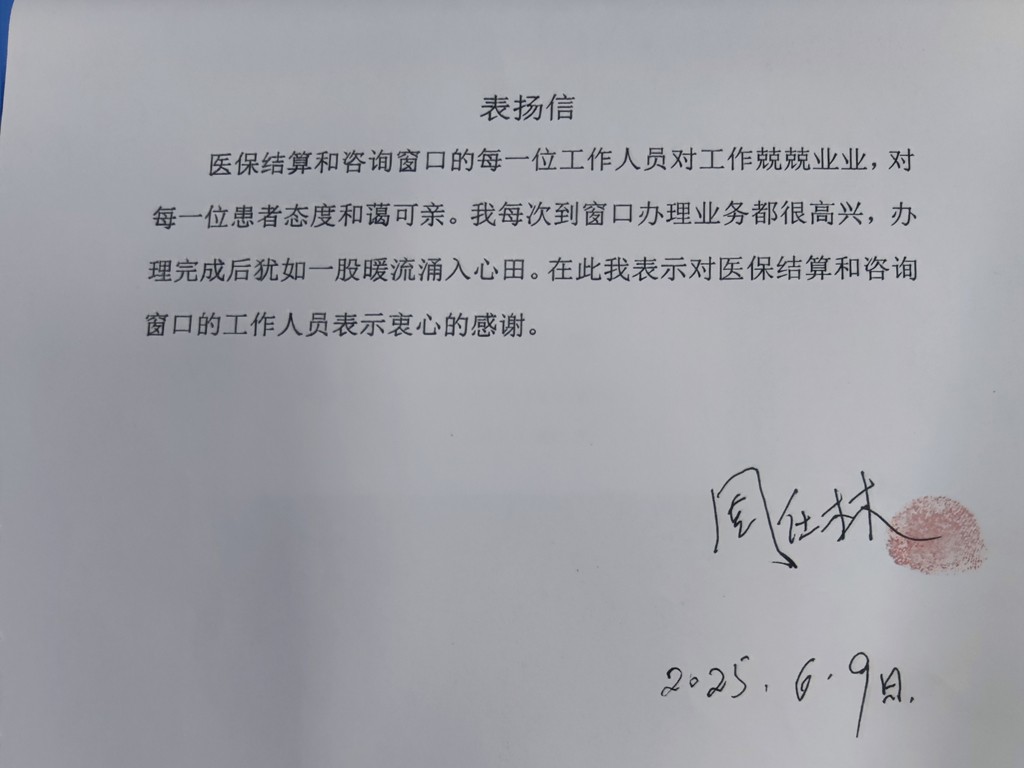 表扬信
医保结算和咨询窗口的每一位工作人员对工作兢兢业业，对
每一位患者态度和蔼可亲。我每次到窗口办理业务都很高兴，办
理完成后犹如一股暖流涌入心田。在此我表示对医保结算和咨询
窗口的工作人员表示衷心的感谢。
周仕林
2025.6.9日.